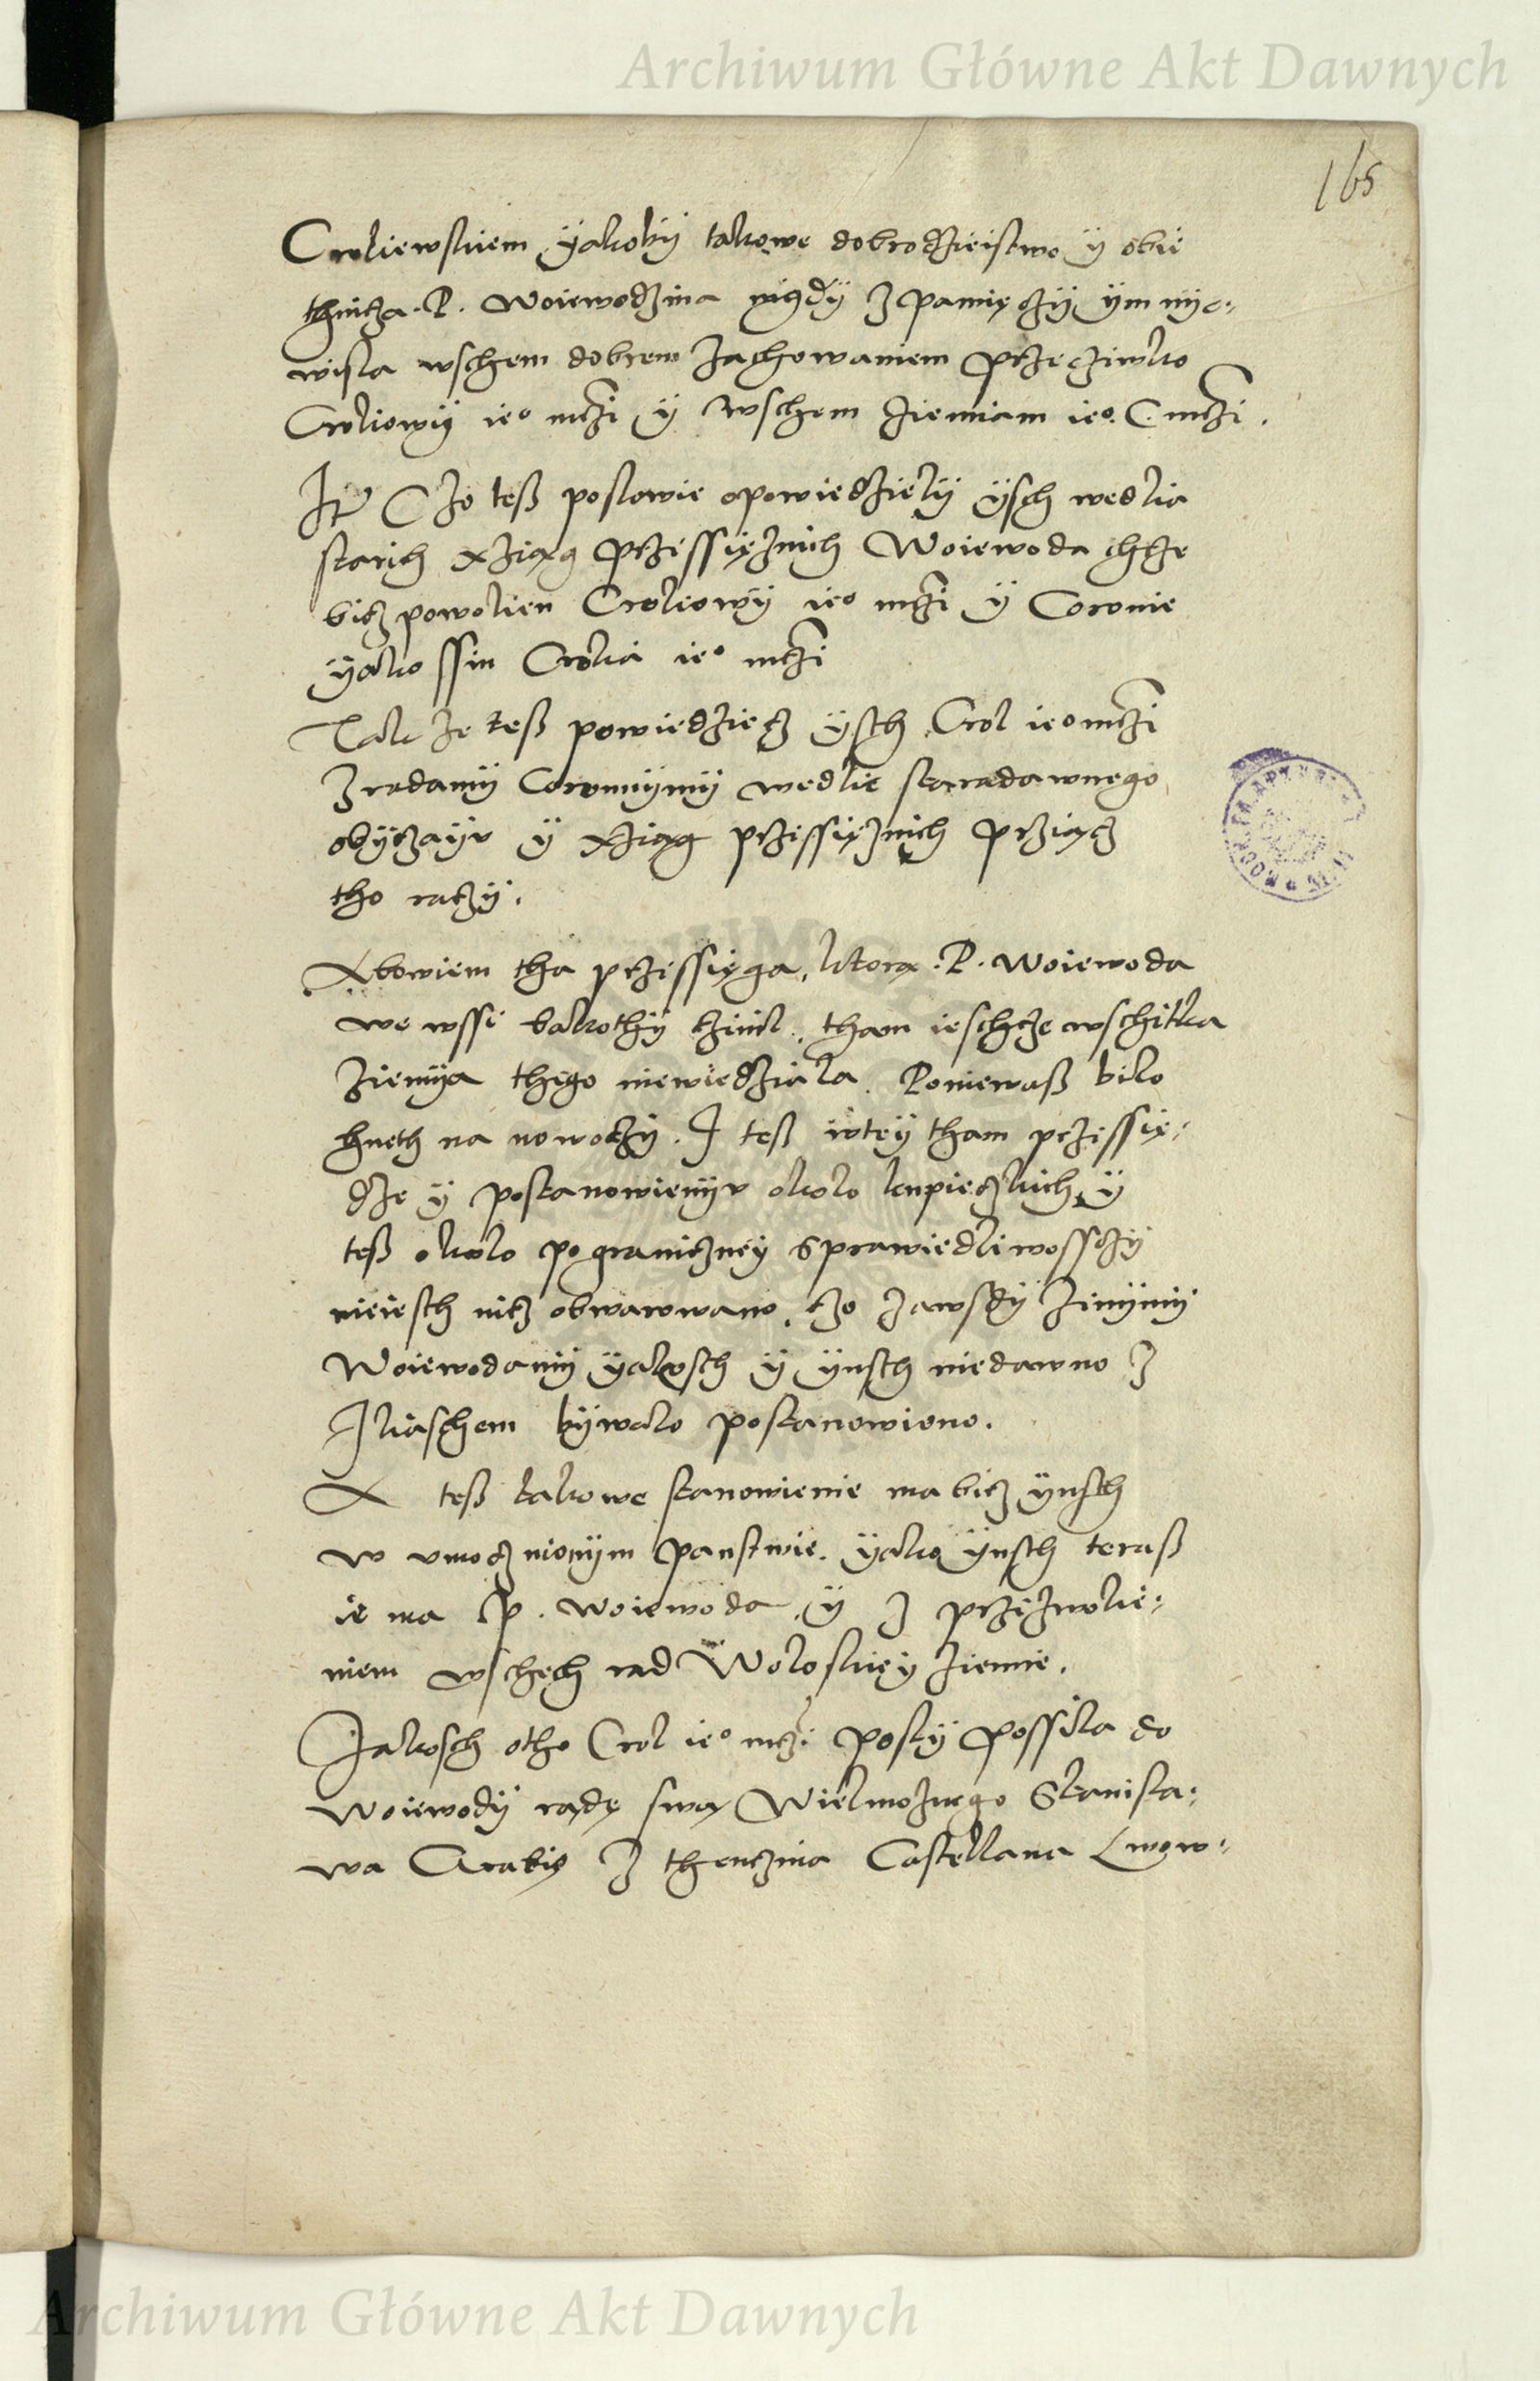 Archiwum Główne Akt Dawnych
165
Croliewskiem yakoby takowe dobrodzieistwo y obie
thnicza .P. Woiewodzina nigdy z pamięczy ym nye-
wisla wschem dobrem zachowaniem przecziwko
Croliowy ie° mczi y wschem ziemiam ie°. C. mczi.
Itē Czo tesz poslowie opowiedziely ysch wedlia
starich xziąg przessiężnich Woiewoda chcze
bicz powolien Croliowy ie° mczi y Coronie
yako ssin Crolia ie° mczi
Tak ze tesz powiedziecz ysch Crol ie° mczi
z radamy Coronnymy wedlie staradawnego
obyczayu y xziąg przessiężnich przyiącz
tho raczy.
Abowiem tha przessięga, ktorą .P. Woiewoda
we wssi bakothy czinil, tham ieschcze wschitka
ziemya thego niewiedziala. Poniewasz bilo
hneth na nowoczy. I tesz wtey tham przessię-
dze y postanowienyu okolo kupieczkich y
tesz okolo pograniczney sprawiedliwossczy
nieiesth nicz obwarowano, czo zawsdy zinymy
Woiewodamy yakosch y ynsch niedawno z
Iliaschem bywalo postanowiono.
A tesz takowe stanowienie ma bicz ynsch
w umocznionym panstwie. yako ynsch terasz
ie ma P. Woiewoda y z przezwolie-
niem wschech rad Woloskiey ziemie.
Jakosch otho Crol ie° mczi posly possila do
Woiewody radę swą Wielmoznego Stanisla-
wa Grabię z thenczina Castellana Lwow-
Archiwum Główne Akt Dawnych